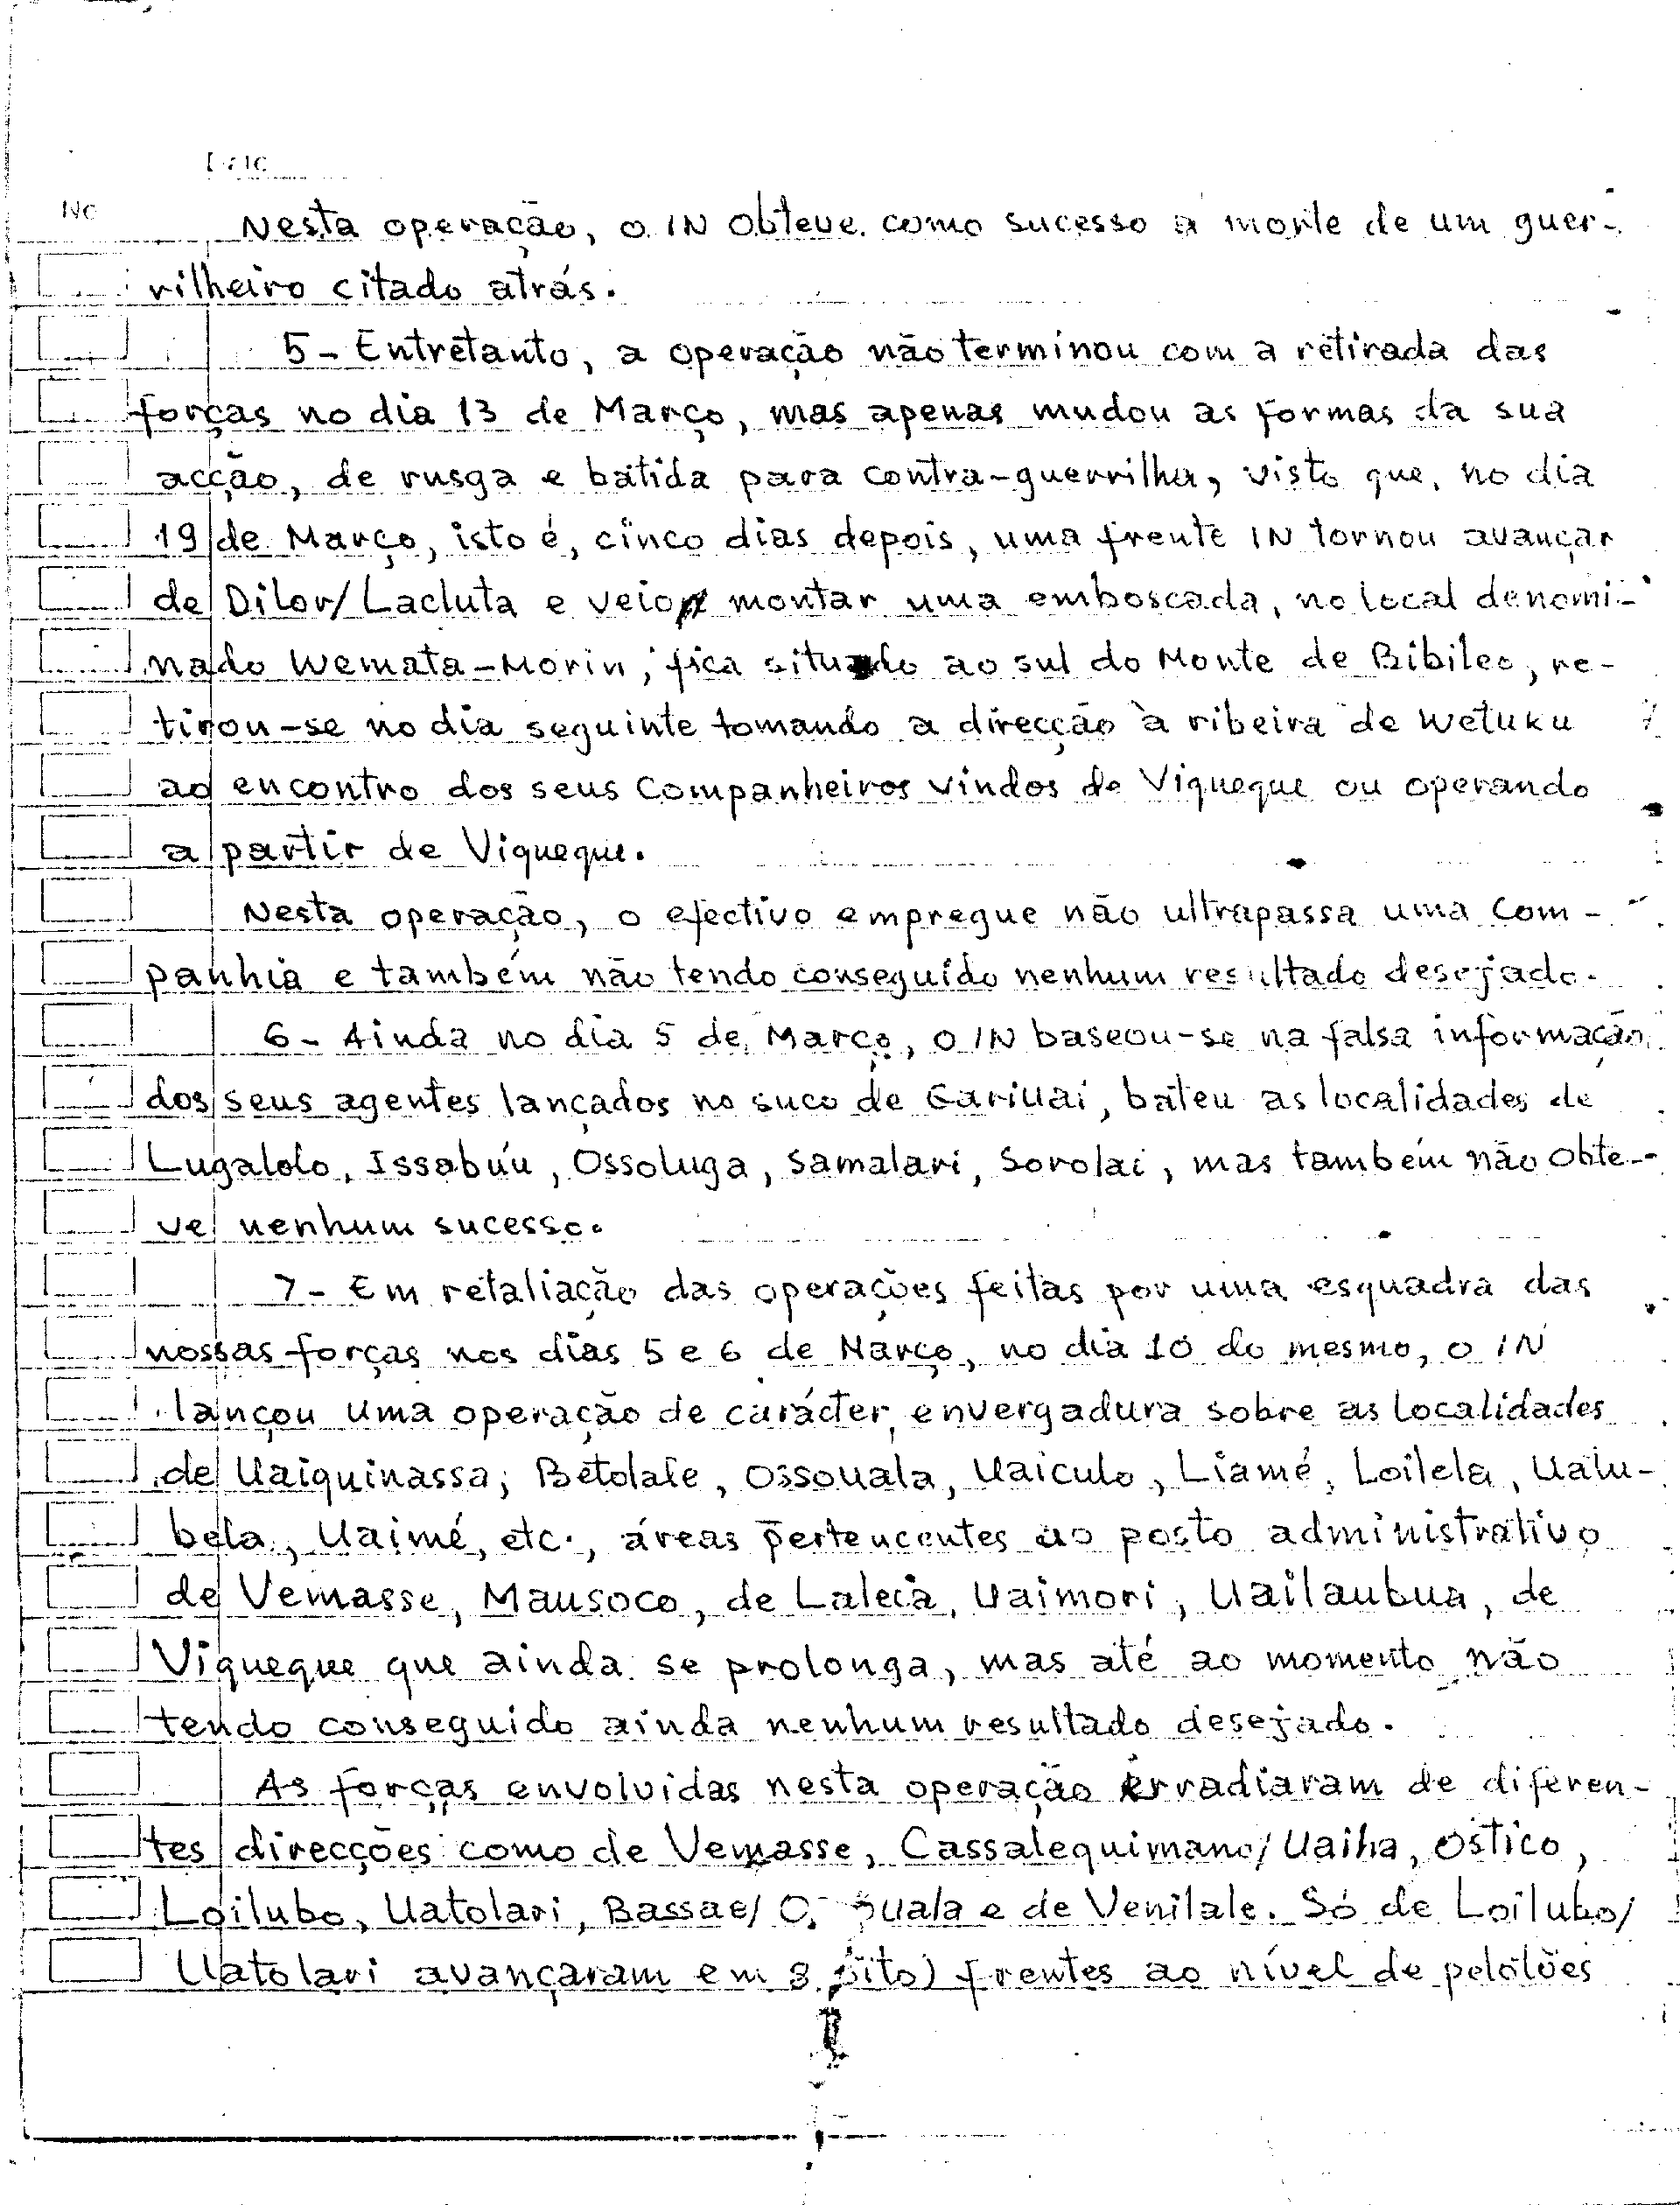 Date
No
Nesta operação, o IN obteve como sucesso a morte de um guer-
rilheiro citado atrás.
5- Entretanto, a operação não terminou com a retirada das
forças no dia 13 de Março, mas apenas mudou as formas da sua
acção, de rusga e batida para contra-guerrilha, visto que, no dia
19 de Março, isto é, cinco dias depois, uma frente IN tornou avançar
de Dilor/Lacluta e veio montar uma emboscada, no local denomi-
nado Wemata-Morin, fica situado ao sul do Monte de Bibileo, re-
tirou-se no dia seguinte tomando a direcção à ribeira de Wetuku
ao encontro dos seus companheiros vindos de Viqueque ou operando
a partir de Viqueque.
Nesta operação, o efectivo empregue não ultrapassa uma com-
panhia e também não tendo conseguido nenhum resultado desejado.
6- Ainda no dia 5 de Março, o IN baseou-se na falsa informação
dos seus agentes lançados no suco de Gariuai, bateu as localidades de
Lugalolo, Issabúu, Ossoluga, Samalari, Sorolai, mas também não obte-
ve nenhum sucesso.
7- Em retaliação das operações feitas por uma esquadra das
nossas forças nos dias 5 e 6 de Março, no dia 10 do mesmo, o IN
lançou uma operação de carácter envergadura sobre as localidades
de Uaiquinassa, Betolale, Ossouala, Uaiculo, Liamé, Loilela, Ualu-
bela, Uaimé, etc., áreas pertencentes ao posto administrativo
de Vemasse, Mausoco, de Laleia, Uaimori, Uailaubua, de
Viqueque que ainda se prolonga, mas até ao momento não
tendo conseguido ainda nenhum resultado desejado.
As forças envolvidas nesta operação irradiaram de diferen-
tes direcções como de Vemasse, Cassalequimano/Uaiha, Ostico,
Loilubo, Uatolari, Bassae/ uala e de Venilale. Só de Loilubo/
Uatolari avançaram em 8 oito) frentes ao nível de pelotões